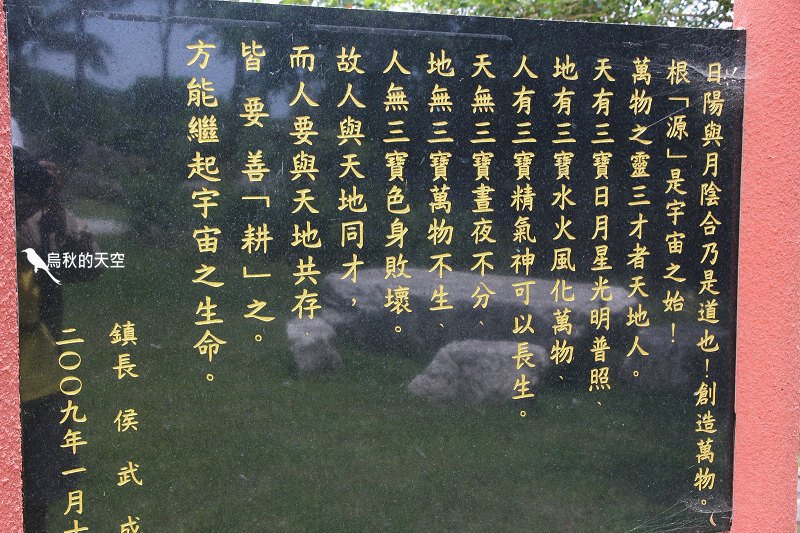 日陽與月陰合乃是道也！創造萬物。（
根「源」是宇宙之始！
萬物之靈三才者天地人。
天有三寶日月星光明普照、
地有三寶水火風化萬物、
人有三寶精氣神可以長生。
天無三寶晝夜不分、
地無三寶萬物不生、
人無三寶色身敗壞。
故人與天地同才，
而人要與天地共存、
皆要善「耕」之。
方能繼起宇宙之生命。
鎮長 侯武成
二〇〇九年一月十
烏秋的天空